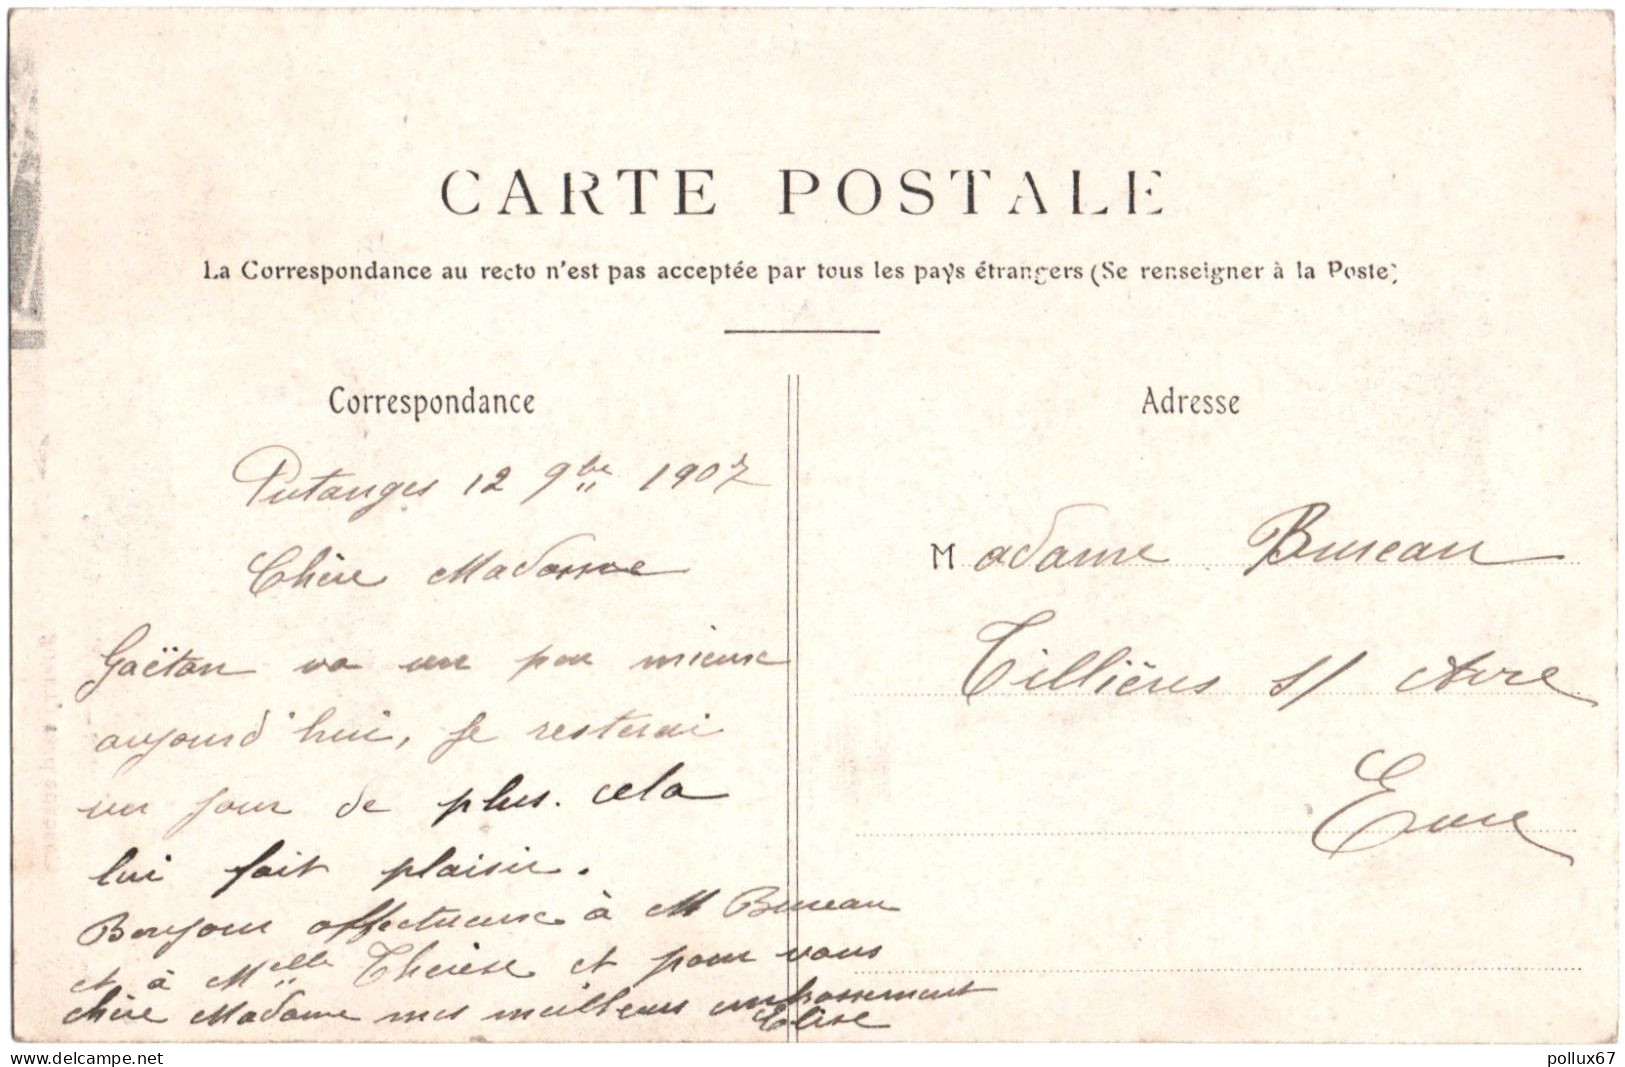 CARTE POSTALE
La Correspondance au recto n'est pas acceptée par tous les pays étrangers (Se renseigner à la Poste)
Correspondance
Putanges 12 9bre 1907
Chère Madame
Gaëtan va un peu mieux
aujourd'hui, je resterai
un jour de plus. cela
lui fait plaisir.
Bonjour affectueux à M Bureau
et à Melle Thérèse et pour vous
chère Madame mes meilleurs embrassement
Elise
Adresse
Madame Bureau
Tillières s/ Avre
Eure
www.delcampe.net
pollux67